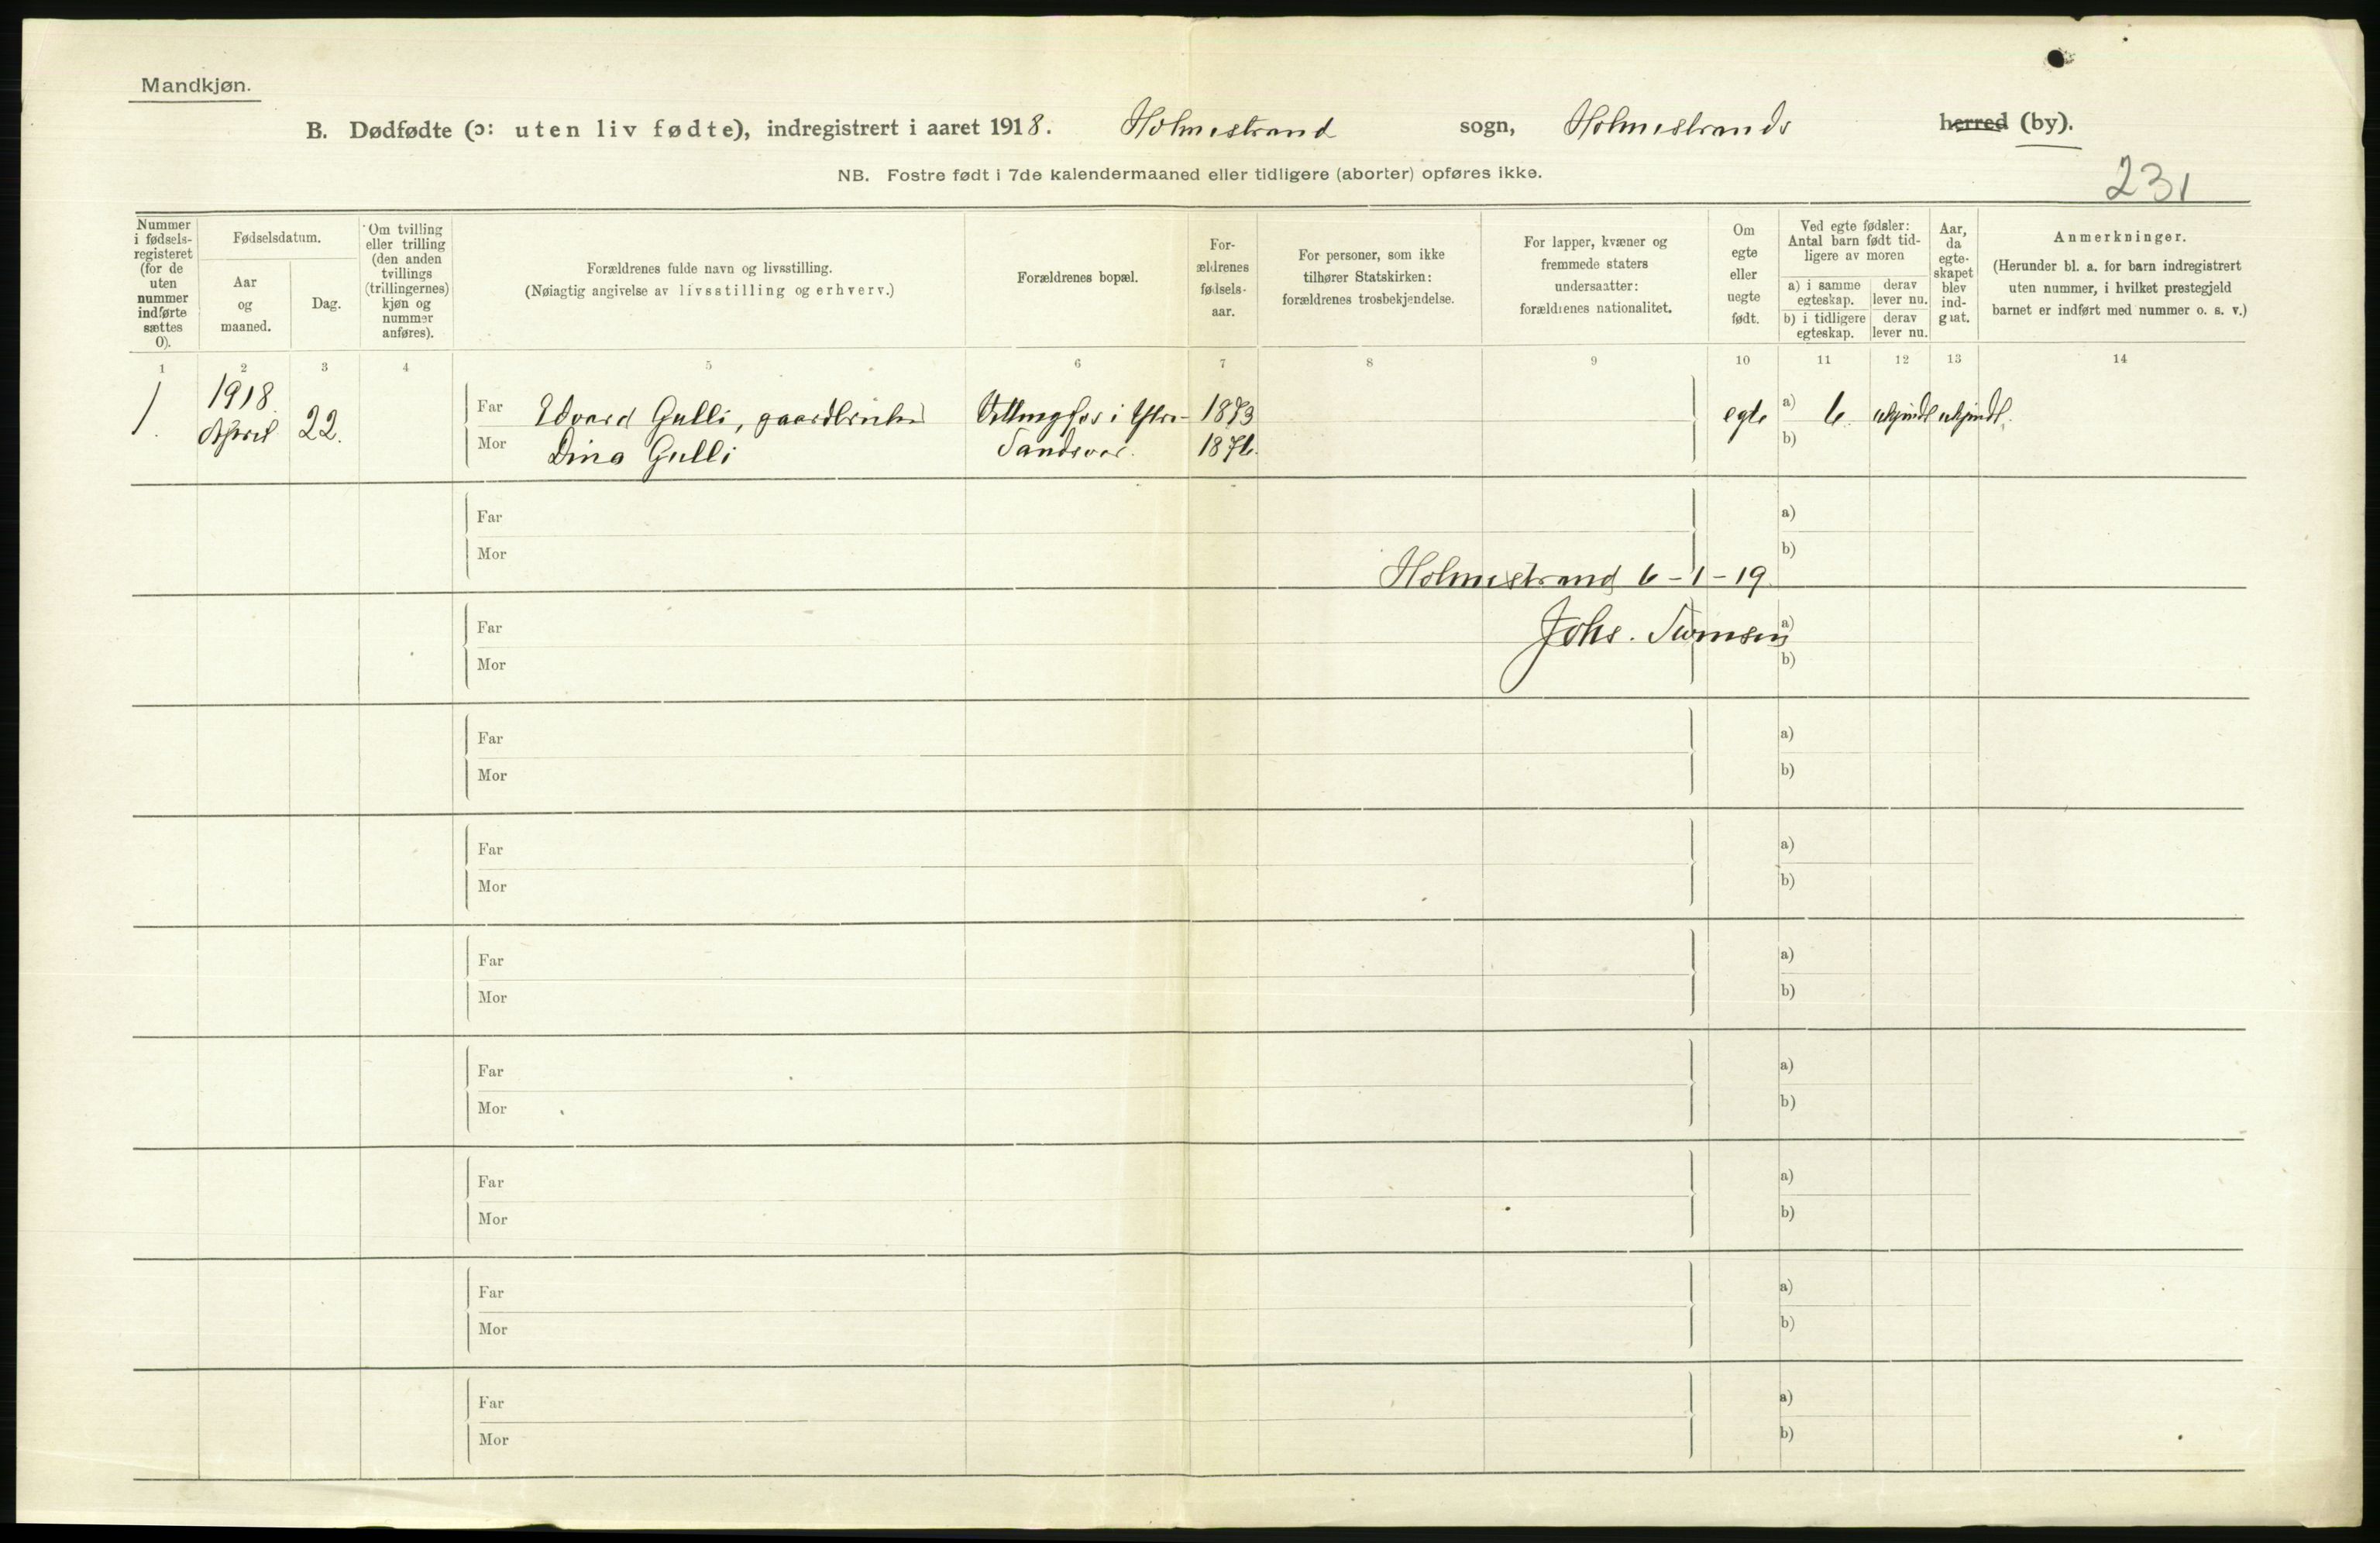 Mandkjøn.
B. Dødfødte (ɔ: uten liv fødte), indregistrert i aaret 1918. Holmestrand sogn, Holmestrands herred (by).
NB. Fostre født i 7de kalendermaaned eller tidligere (aborter) opføres ikke.
231
Nummer
i fødsels-
registeret
(for de
uten
nummer
indførte
sættes
0).
Fødselsdatum.
Aar
og
maaned.
Dag.
Om tvilling
eller trilling
(den anden
tvillings
(trillingernes)
kjøn og
nummer
anføres).
Forældrenes fulde navn og livsstilling.
(Nøiagtig angivelse av livsstilling og erhverv.)
Forældrenes bopæl.
For-
ældrenes
fødsels-
aar.
For personer, som ikke
tilhører Statskirken:
forældrenes trosbekjendelse.
For lapper, kvæner og
fremmede staters
undersaatter:
forældrenes nationalitet.
Om
egte
eller
uegte
født.
Ved egte fødsler:
Antal barn født tid-
ligere av moren
a) i samme
egteskap.
derav
lever nu.
b) i tidligere
egteskap.
derav
lever nu.
Aar,
da
egte-
skapet
blev
ind-
gaat.
Anmerkninger.
(Herunder bl. a. for barn indregistrert
uten nummer, i hvilket prestegjeld
barnet er indført med nummer o. s. v.)
1 2 3 4 5 6 7 8 9 10 11 12 13 14
1. 1918 April 22.
Far Edvard Gulli, gaardbruker i 1873 egte a) 6 ukjendt ukjendt.
Mor Dina Gulli Sandsvær. 1876. b)
Far a)
Mor b)
Holmestrand 6-1-19
Far Johs. a)
Mor b)
Far a)
Mor b)
Far a)
Mor b)
Far a)
Mor b)
Far a)
Mor b)
Far a)
Mor b)
Far a)
Mor b)
Far a)
Mor b)